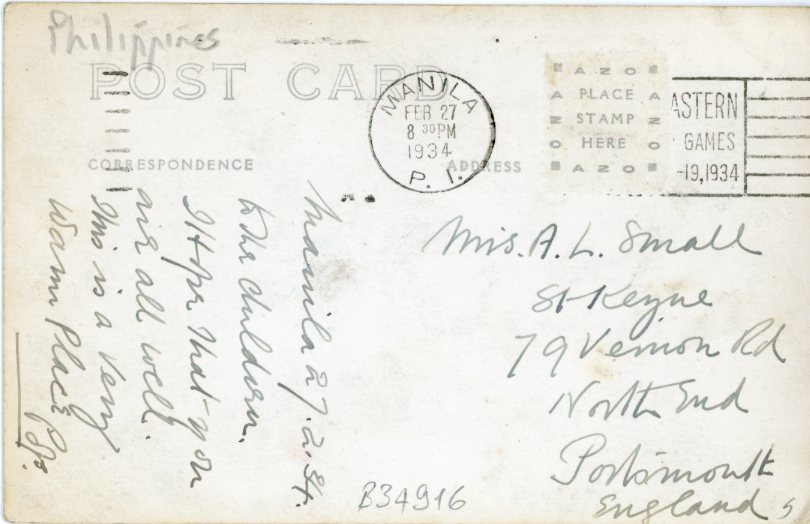 Philippines
POST CARD
CORRESPONDENCE
ADDRESS
MANILA
FEB 27
8 30PM
1934
P. I.
AZO
PLACE
STAMP
HERE
AZO
ASTERN
GAMES
-19,1934
Manila 27.2.34.
to the children.
I Hope that you
are all well.
This is a very
warm Place
Mrs. A. L. Small
St Keyne
79 Vernon Rd
North End
Portsmouth
England
B34916